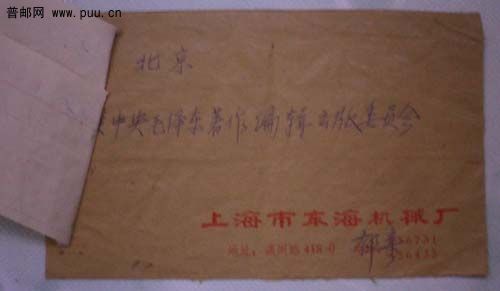 普邮网
www.puu.cn
北京
中央毛泽东著作编辑出版委员会
上海市东海机械厂
地址:
418